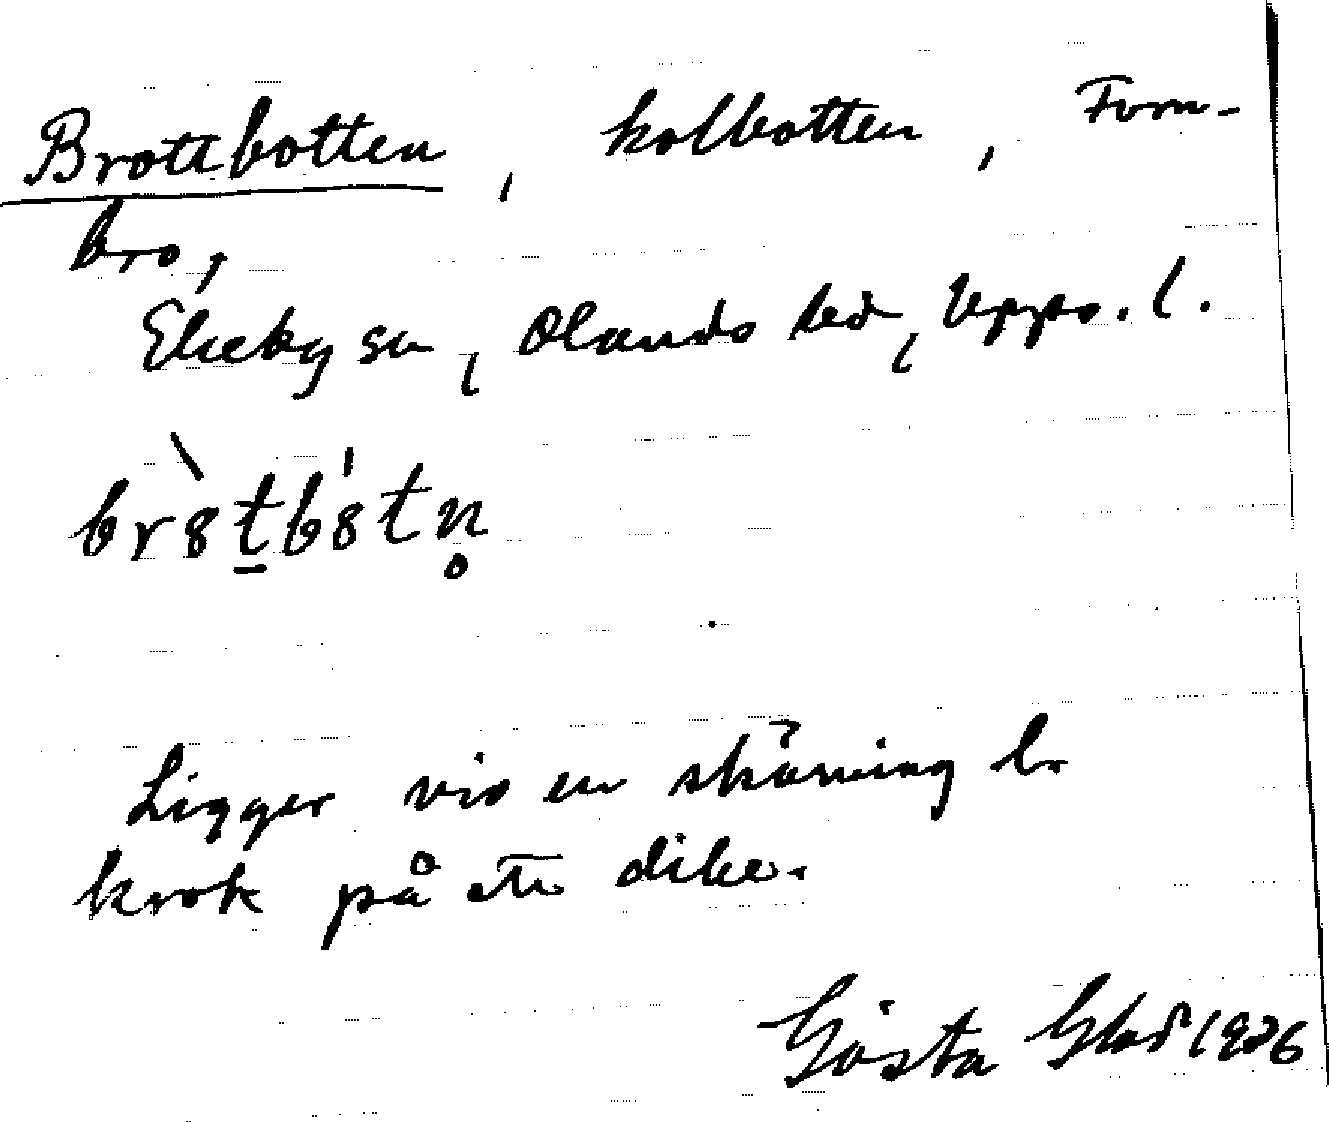 Brottbotten, kolbotten, Forn-
bro,
Ekeby sn, Olands hd, Upps. l.
br8tb8tn̥
Ligger vid en skärning l.
krok på ett dike.
Gösta Glad 1926